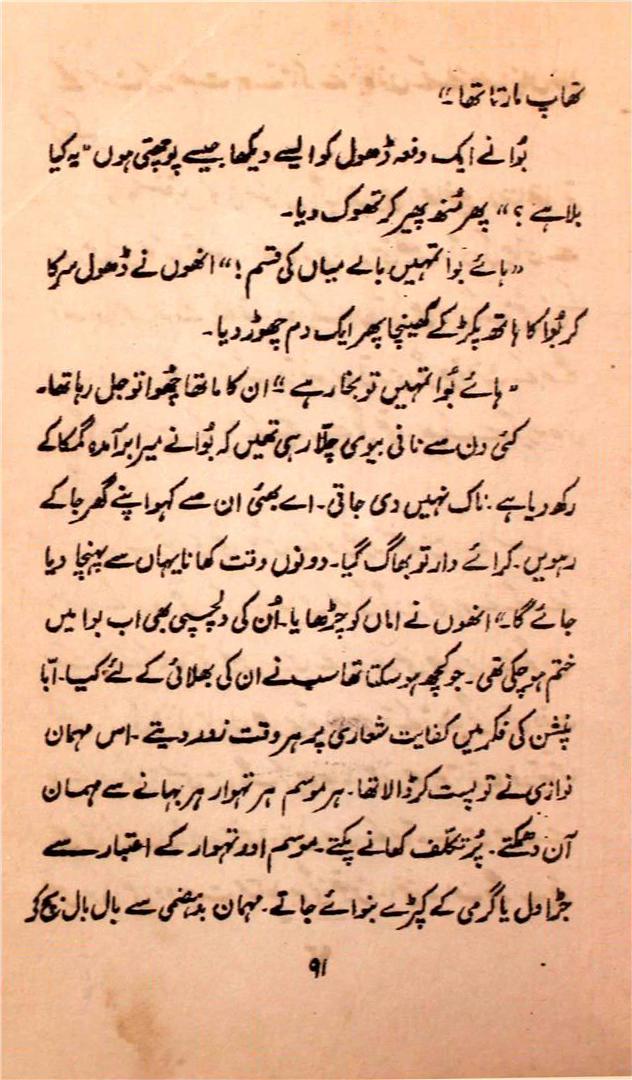 تھاپ مارتا تھا۔“
بُوا نے ایک دفعہ ڈھول کو ایسے دیکھا جیسے پوچھتی ہوں ”یہ کیا
بلا ہے؟“ پھر مُنھ پھیر کر تھوک دیا۔
”ہائے بوا تمہیں بالے میاں کی قسم!“ انھوں نے ڈھول سرکا
کر بُوا کا ہاتھ پکڑ کے کھینچا پھر ایک دم چھوڑ دیا۔
”ہائے بُوا تمہیں تو بخار ہے“ ان کا ماتھا چُھوا تو جل رہا تھا۔
کئی دن سے نانی بیوی چلّا رہی تھیں کہ بُوا نے میرا برآمدہ گمکا کے
رکھ دیا ہے۔ ناک نہیں دی جاتی۔ اے بھئی ان سے کہو اپنے گھر جا کے
رہویں۔ کرائے دار تو بھاگ گیا۔ دونوں وقت کھانا یہاں سے پہنچا دیا
جائے گا۔“ انھوں نے اماں کو چڑھایا۔ اُن کی دلچسپی بھی اب بوا میں
ختم ہو چکی تھی۔ جو کچھ ہو سکتا تھا سب نے ان کی بھلائی کے لئے کیا۔ ابّا
پنشن کی فکر میں کفایت شعاری پر ہر وقت زور دیتے۔ اس مہمان
نوازی نے تو پست کر ڈالا تھا۔ ہر موسم ہر تہوار ہر بہانے سے مہمان
آن دھمکتے۔ پُر تکلّف کھانے پکتے۔ موسم اور تہوار کے اعتبار سے
جڑاول یا گرمی کے کپڑے بنوائے جاتے۔ مہمان بدہضمی سے بال بال بچ کر
۹۱